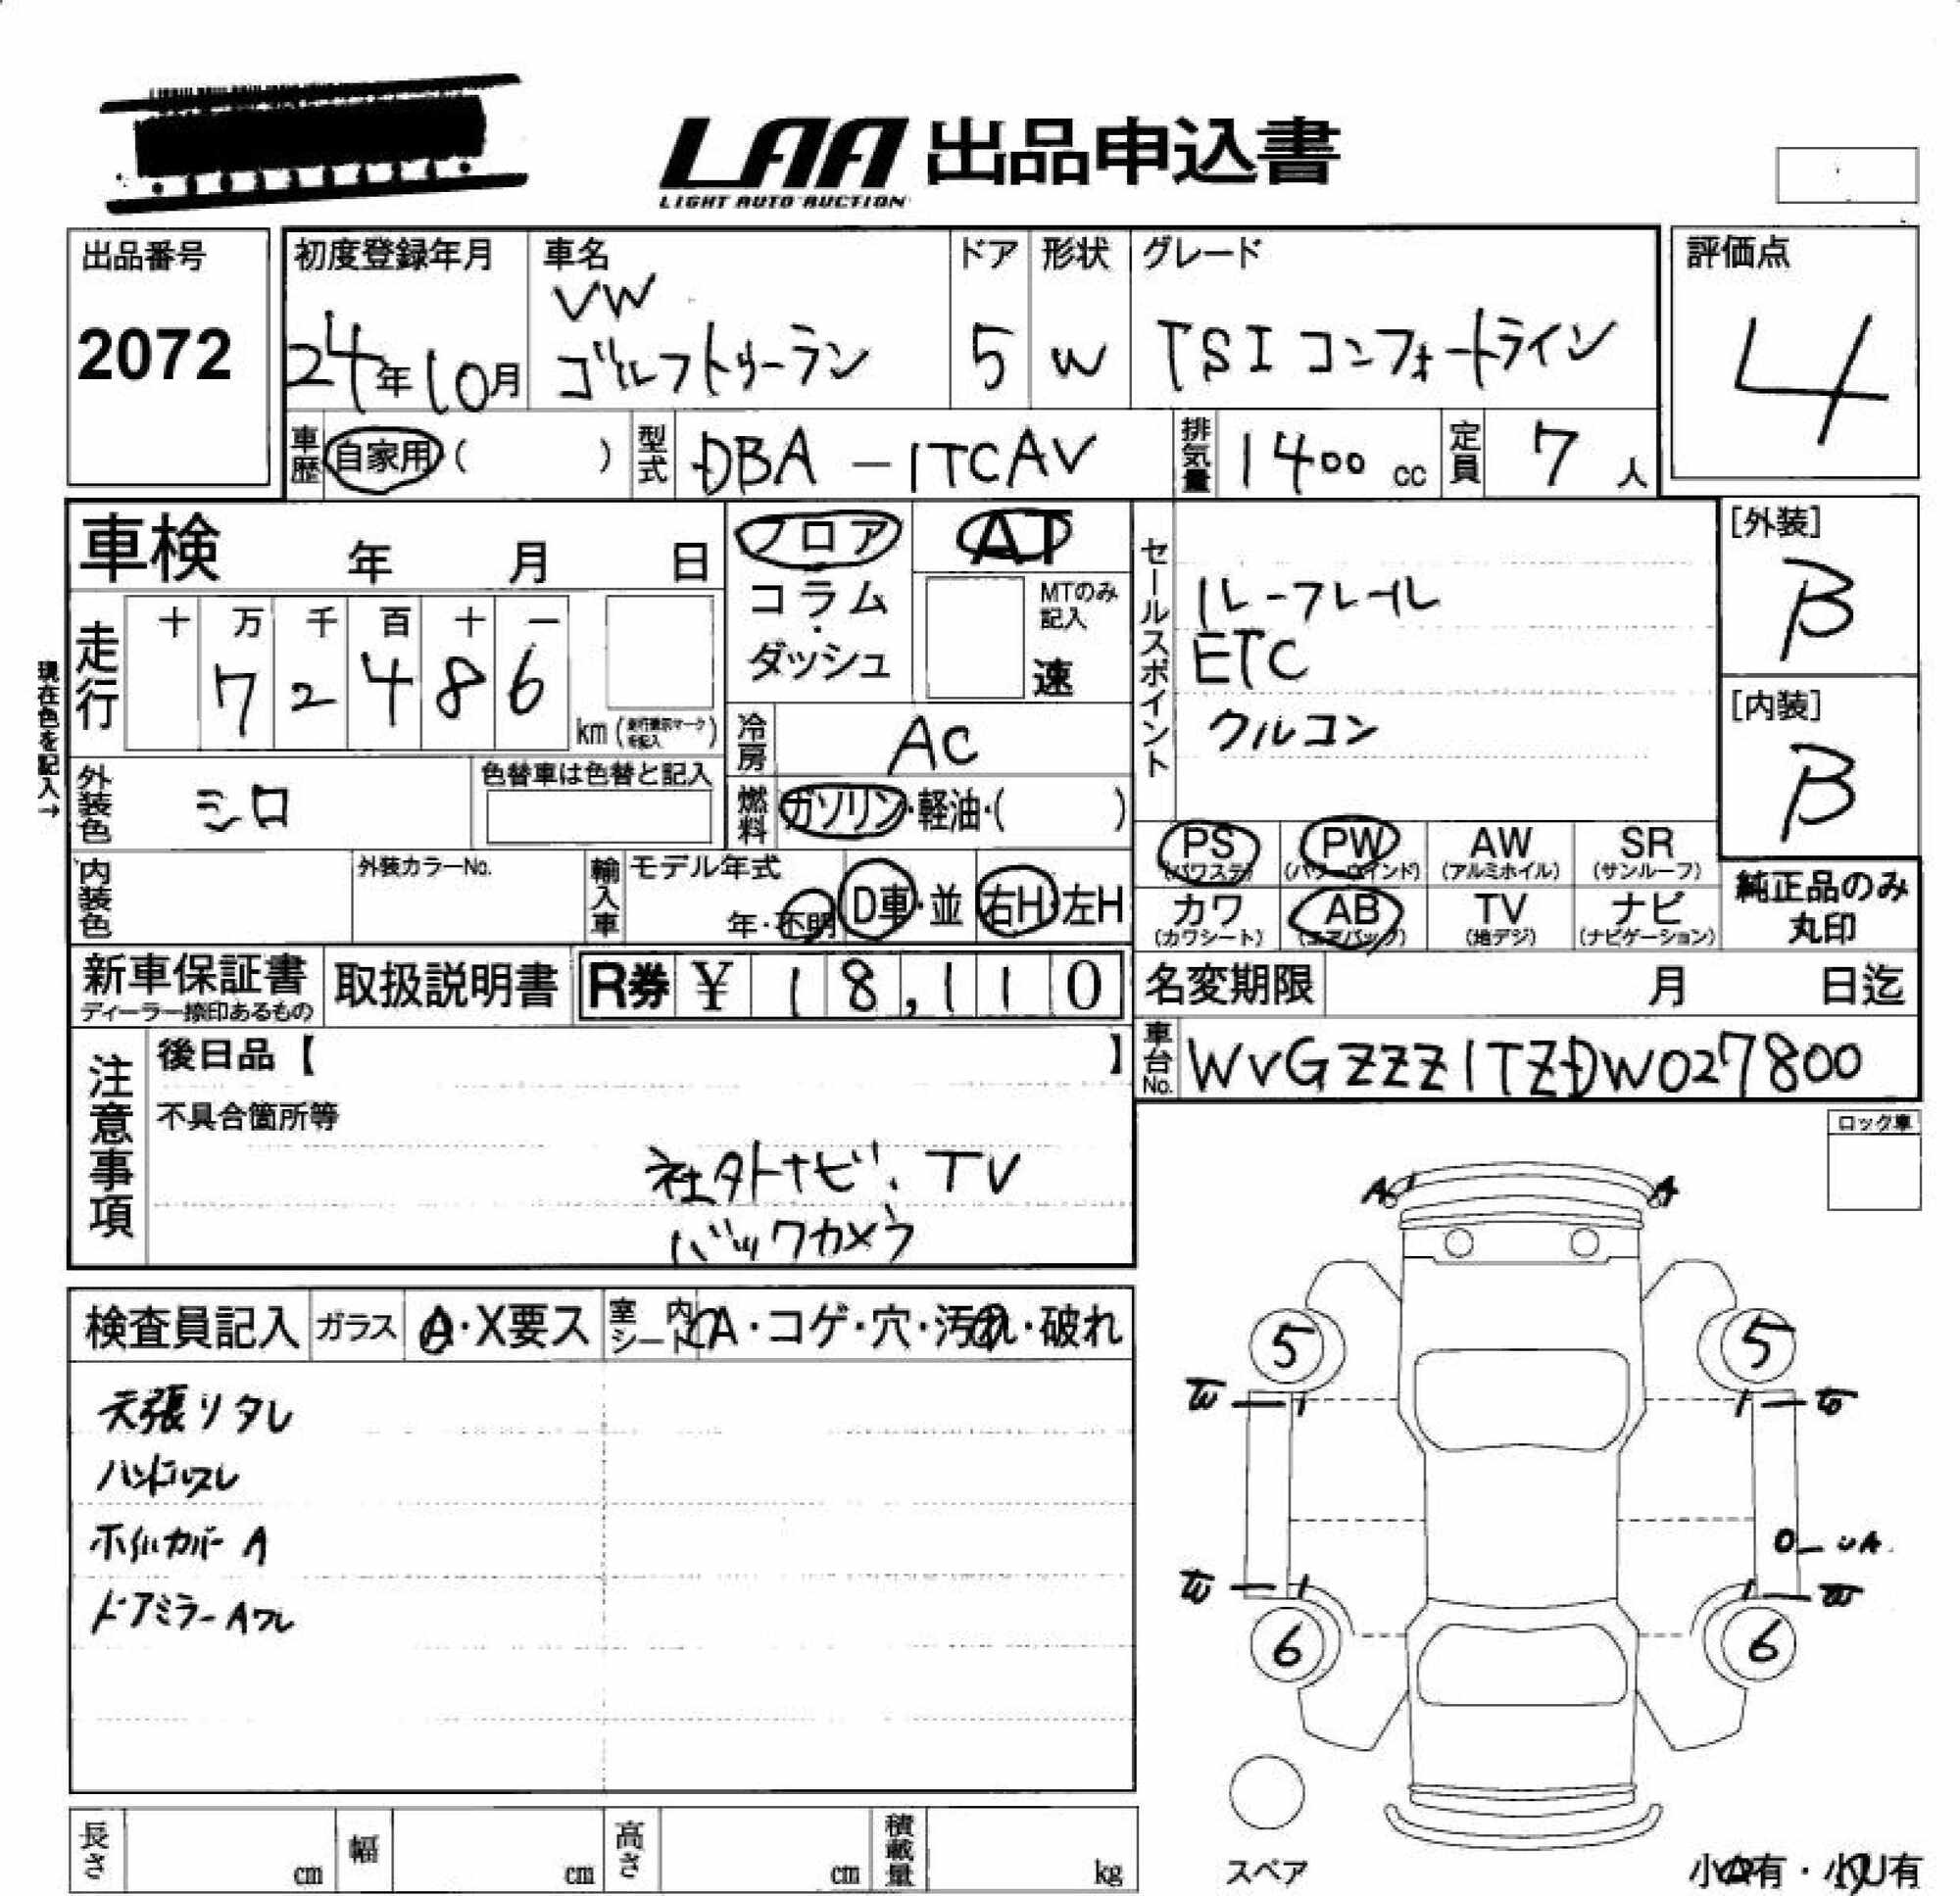 LAA 出品申込書
LIGHT AUTO AUCTION
出品番号
2072
初度登録年月
24年10月
車名
VW
ゴルフトゥーラン
ドア
5
形状
W
グレード
TSI コンフォートライン
評価点
4
車歴 自家用 ( )
型式 DBA-1TCAV
排気量 1400 cc
定員 7 人
車検 年 月 日
フロア
コラム・
ダッシュ
AT
MTのみ
記入
速
セールスポイント
ルーフレール
ETC
クルコン
[外装]
B
[内装]
B
現在色を記入→
走行
十 万 千 百 十 一
7 2 4 8 6
km (走行表示マークを記入)
冷房 AC
燃料 ガソリン・軽油・( )
外装色 シロ
色替車は色替と記入
内装色
外装カラーNo.
輸入車
モデル年式
年・不明
D車・並
右H・左H
PS (パワステ)
PW (パワーウインド)
AW (アルミホイル)
SR (サンルーフ)
カワ (カワシート)
AB (エアバッグ)
TV (地デジ)
ナビ (ナビゲーション)
純正品のみ
丸印
新車保証書
ディーラー捺印あるもの
取扱説明書
R券 ¥ 18,110
名変期限 月 日迄
車台No. WVGZZZ1TZDW027800
注意事項
後日品【 】
不具合箇所等
社外ナビ、TV
バックカメラ
ロック車
検査員記入
ガラス A・X要ス
室内シート A・コゲ・穴・汚れ・破れ
天張りタレ
ハンドルスレ
ホイルカバー A
ドアミラー Aワレ
A A
5 5
W W
UA
W W
6 6
スペア
長さ cm
幅 cm
高さ cm
積載量 kg
小A有・小U有